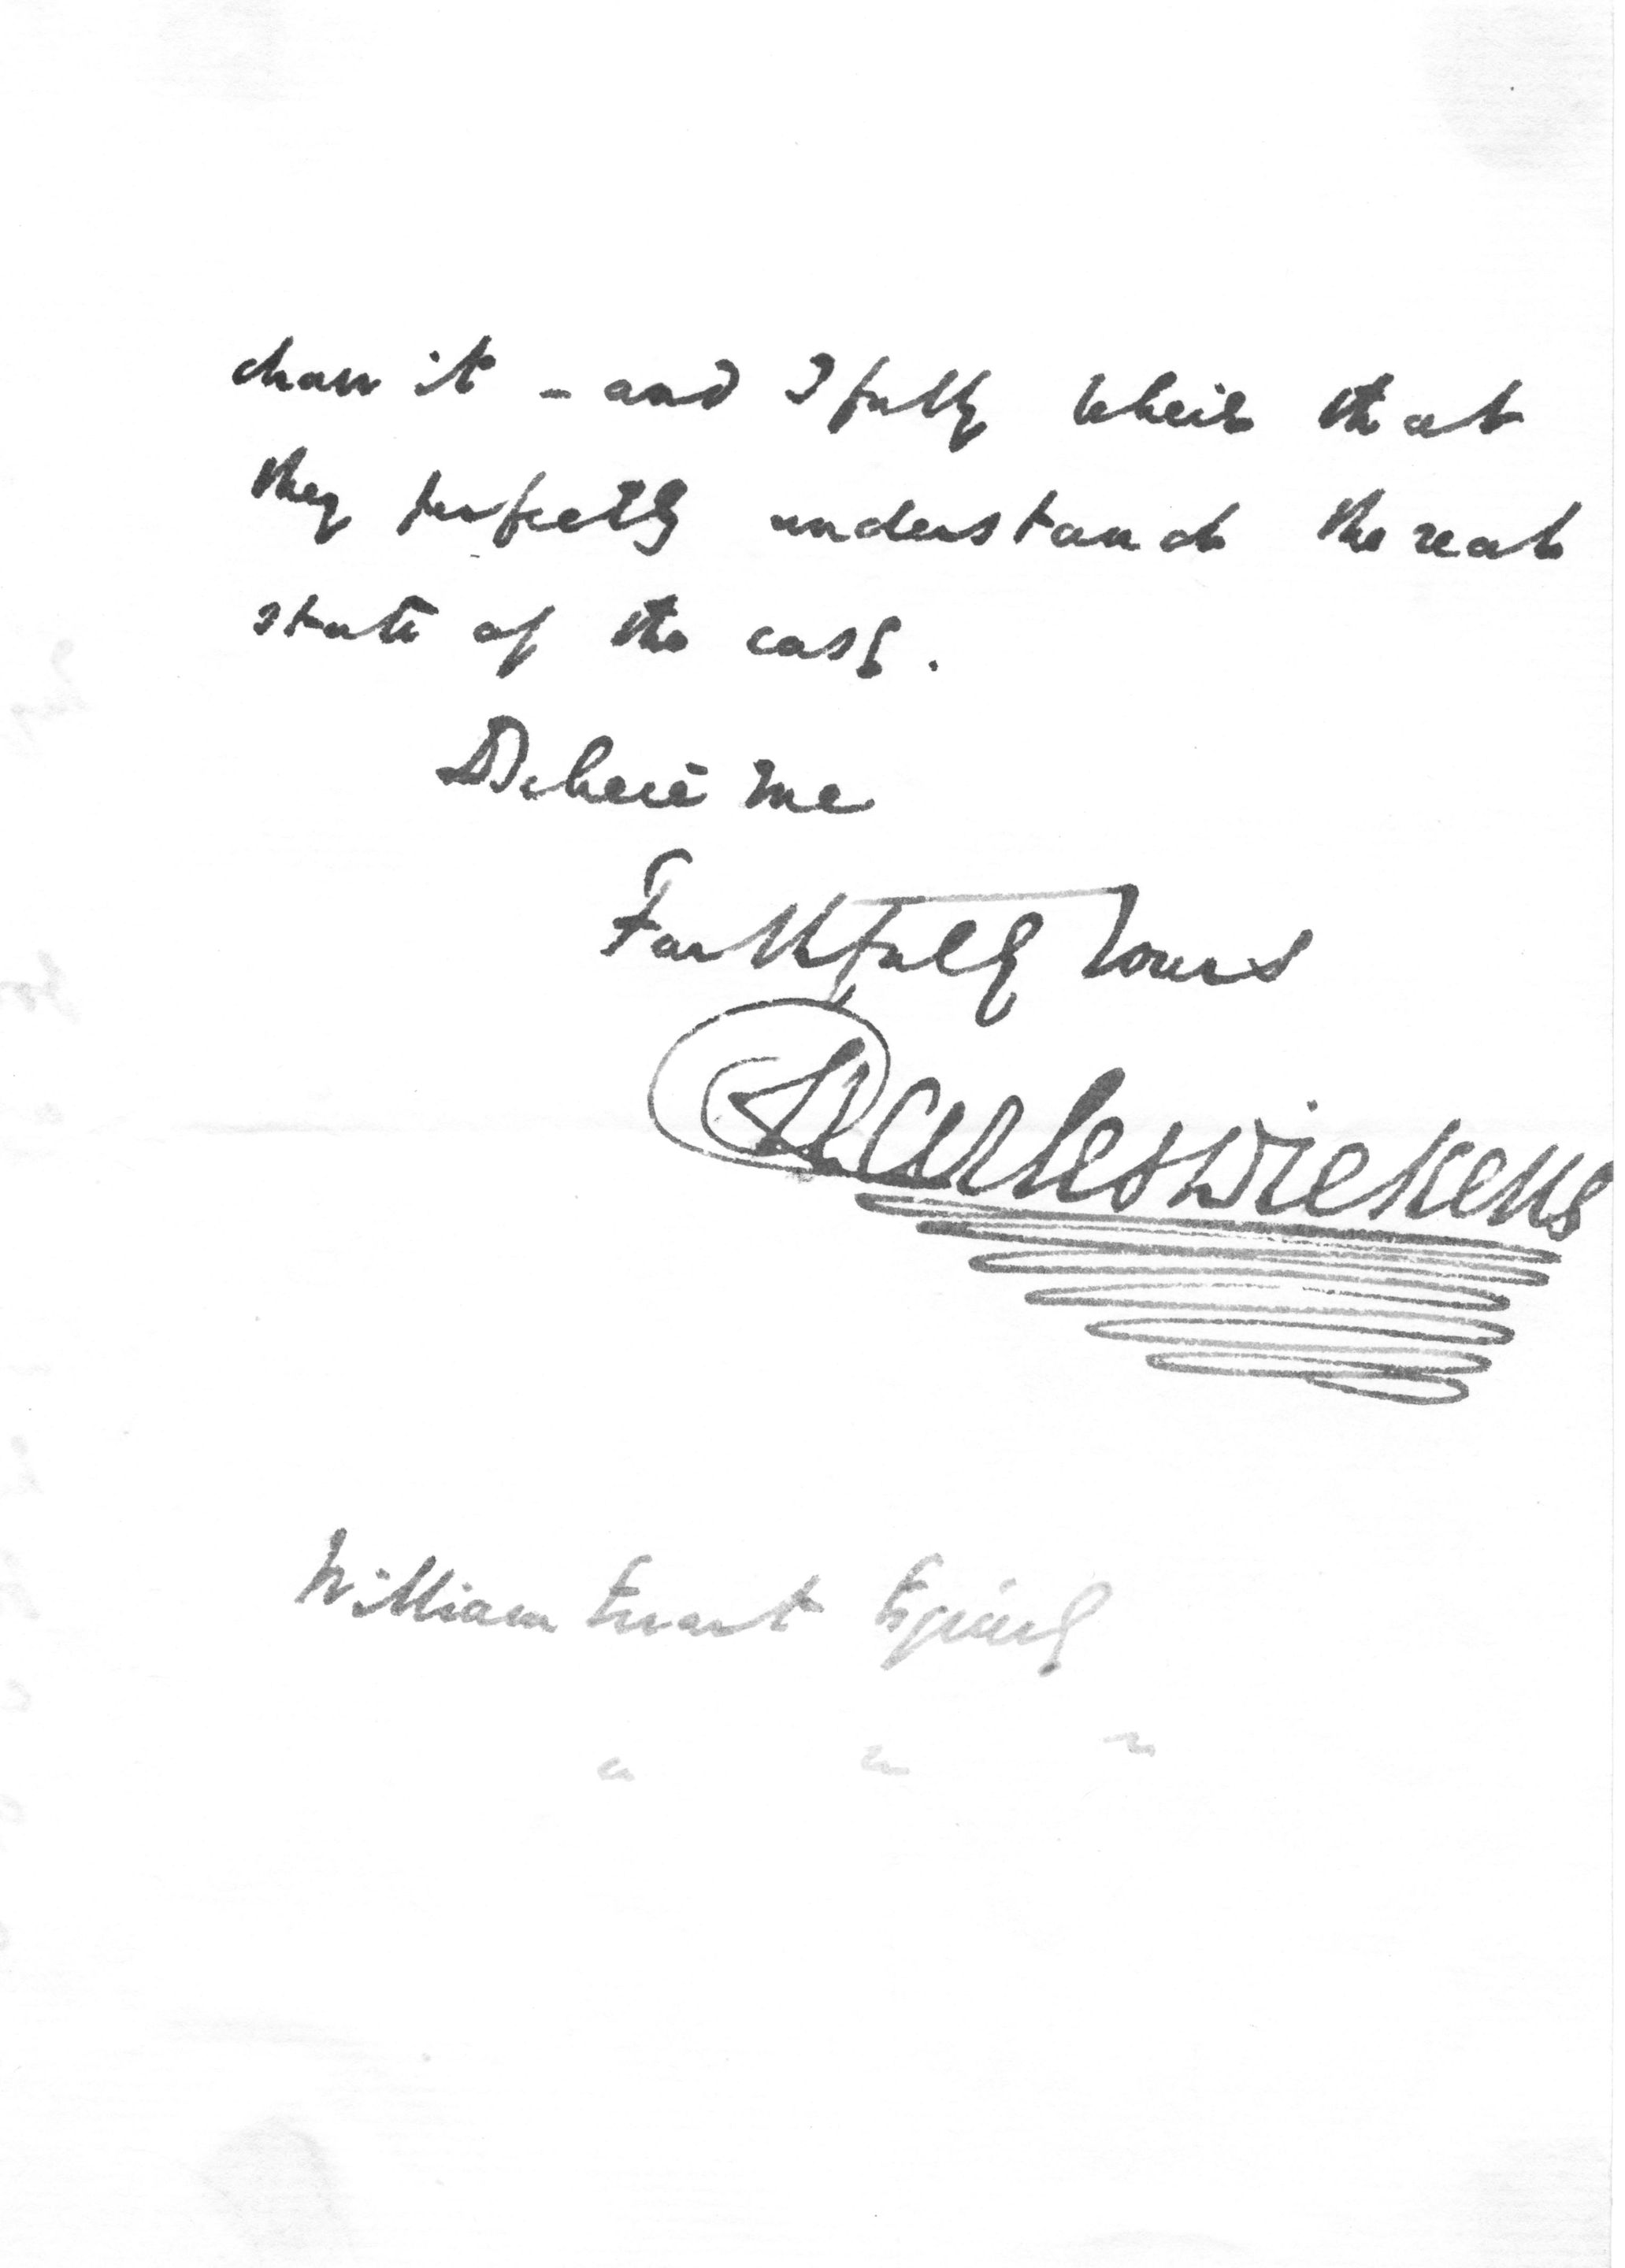 draw it - and I fully believe that
they perfectly understand the real
state of the case.
Believe me
Faithfully Yours
Charles Dickens
William Ewart Esquire